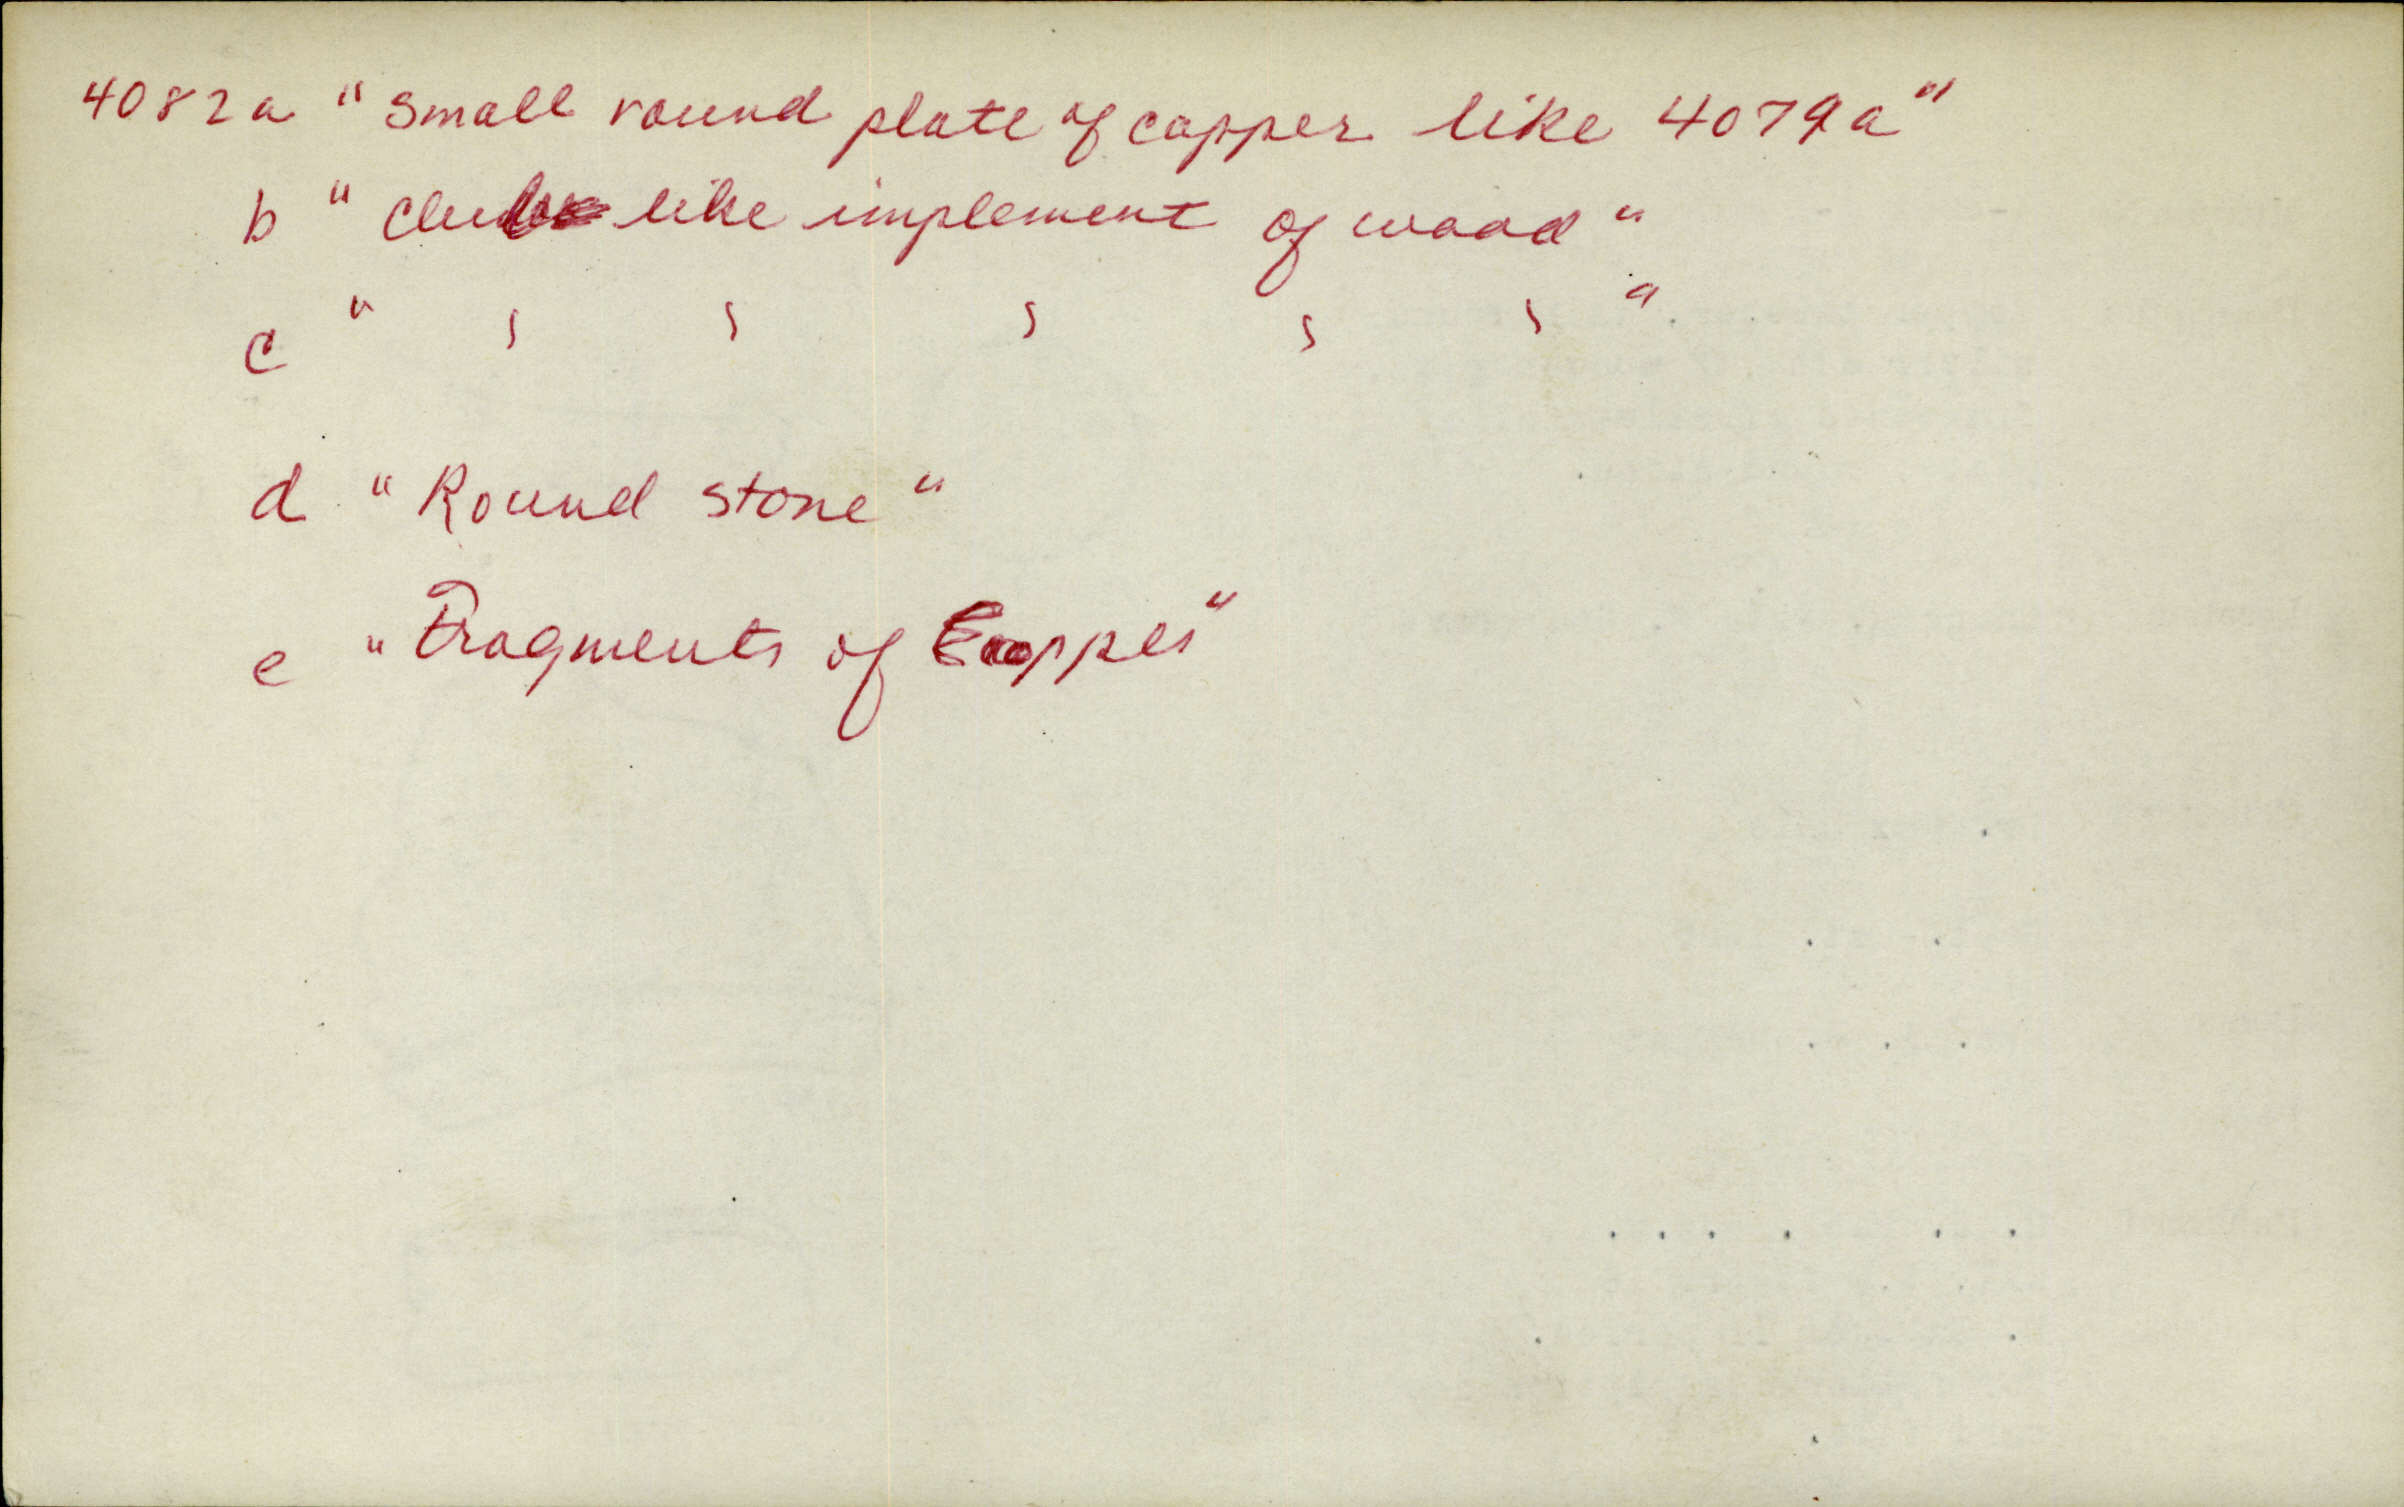 4082a "Small round plate of copper like 4079a"
b "Club like implement of wood"
c " ) ) ) ) ) "
d "Round stone"
e "Fragments of Copper"